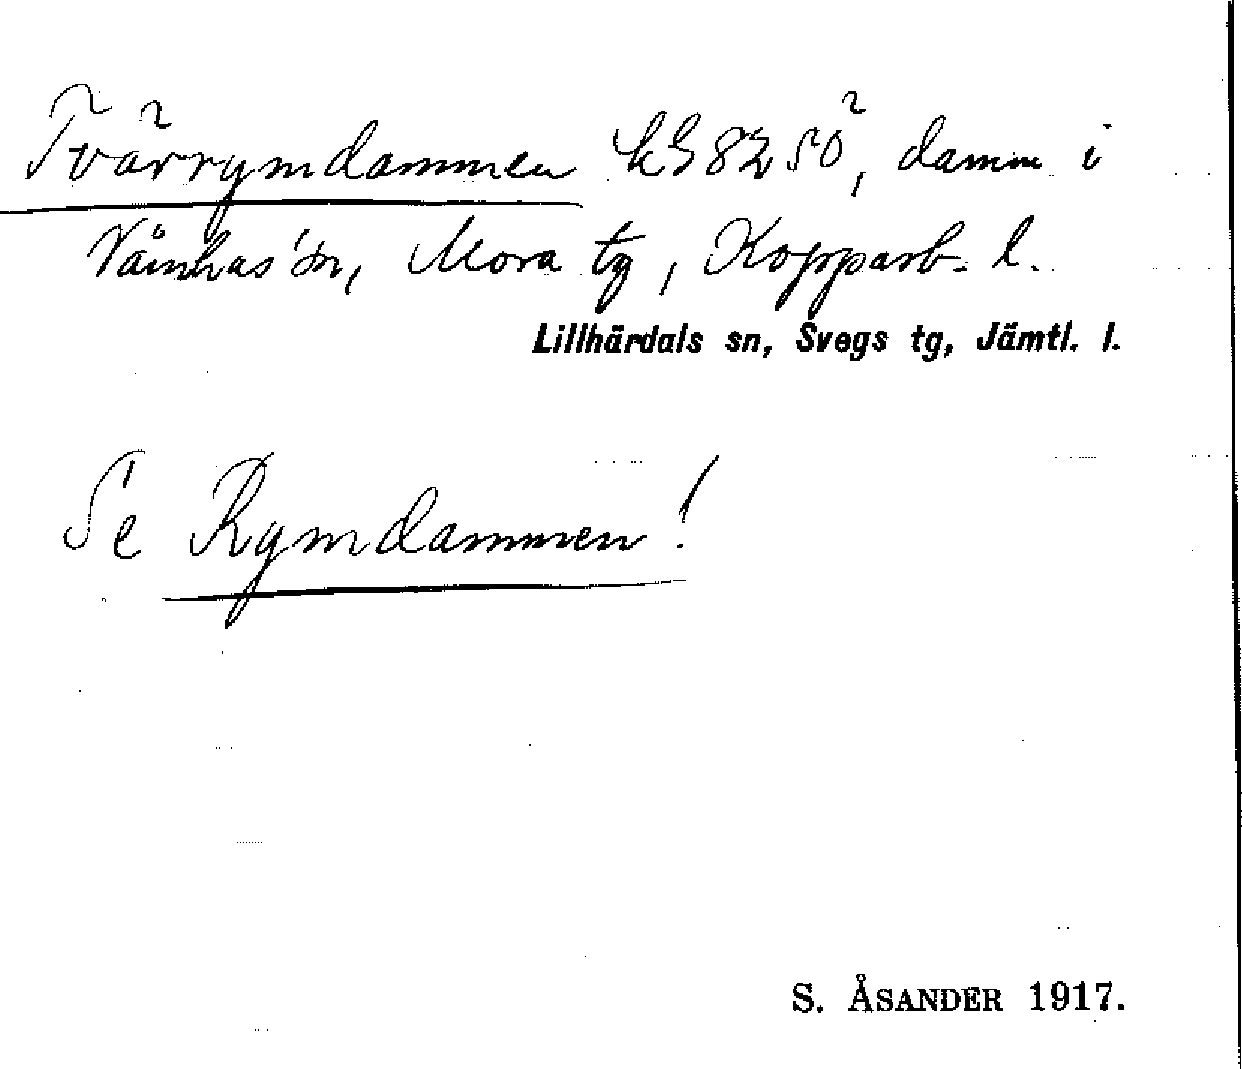 Tvärrymdammen kG 82 SÖ, damm i
Våmhus sn, Mora tg, Kopparb. l.
Lillhärdals sn, Svegs tg, Jämtl. l.
Se Rymdammen!
S. ÅSANDER 1917.